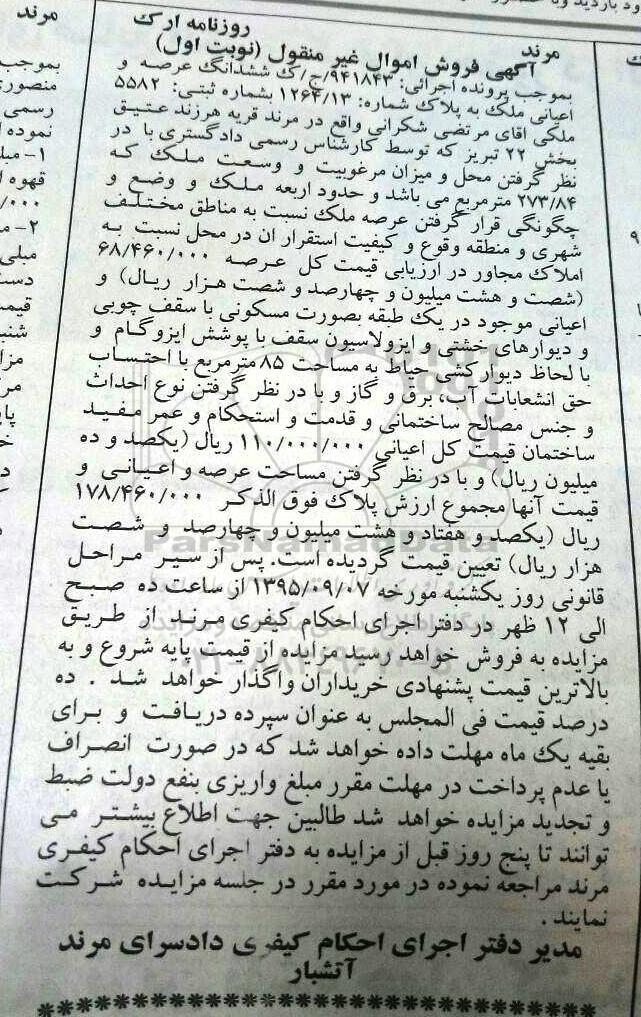 مرند
روزنامه ارک
آگهی فروش اموال غیر منقول (نوبت اول)
بموجب پرونده اجرائی: ۹۴۱۸۴۳/ج/ک ششدانگ عرصه و
اعیانی ملک به پلاک شماره: ۱۲۶۴/۱۳ بشماره ثبتی: ۵۵۸۲
ملکی اقای مرتضی شکرانی واقع در مرند قریه هرزند عتیق
بخش ۲۲ تبریز که توسط کارشناس رسمی دادگستری با در
نظر گرفتن محل و میزان مرغوبیت و وسعت ملک که
۲۷۳/۸۴ مترمربع می باشد و حدود اربعه ملک و وضع و
چگونگی قرار گرفتن عرصه ملک نسبت به مناطق مختلف
شهری و منطقه وقوع و کیفیت استقرار ان در محل نسبت به
املاک مجاور در ارزیابی قیمت کل عرصه ۶۸/۴۶۰/۰۰۰
(شصت و هشت میلیون و چهارصد و شصت هزار ریال) و
اعیانی موجود در یک طبقه بصورت مسکونی با سقف چوبی
و دیوارهای خشتی و ایزولاسیون سقف با پوشش ایزوگام و
با لحاظ دیوارکشی حیاط به مساحت ۸۵ مترمربع با احتساب
حق انشعابات آب، برق و گاز و با در نظر گرفتن نوع احداث
و جنس مصالح ساختمانی و قدمت و استحکام و عمر مفید
ساختمان قیمت کل اعیانی ۱۱۰/۰۰۰/۰۰۰ ریال (یکصد و ده
میلیون ریال) و با در نظر گرفتن مساحت عرصه و اعیانی و
قیمت آنها مجموع ارزش پلاک فوق الذکر ۱۷۸/۴۶۰/۰۰۰
ریال (یکصد و هفتاد و هشت میلیون و چهارصد و شصت
هزار ریال) تعیین قیمت گردیده است. پس از سیر مراحل
قانونی روز یکشنبه مورخه ۱۳۹۵/۰۹/۰۷ از ساعت ده صبح
الی ۱۲ ظهر در دفتر اجرای احکام کیفری مرند از طریق
مزایده به فروش خواهد رسید مزایده از قیمت پایه شروع و به
بالاترین قیمت پشنهادی خریداران واگذار خواهد شد . ده
درصد قیمت فی المجلس به عنوان سپرده دریافت و برای
بقیه یک ماه مهلت داده خواهد شد که در صورت انصراف
یا عدم پرداخت در مهلت مقرر مبلغ واریزی بنفع دولت ضبط
و تجدید مزایده خواهد شد طالبین جهت اطلاع بیشتر می
توانند تا پنج روز قبل از مزایده به دفتر اجرای احکام کیفری
مرند مراجعه نموده در مورد مقرر در جلسه مزایده شرکت
نمایند .
مدیر دفتر اجرای احکام کیفری دادسرای مرند
آتشبار
ParsNamadData
مرند
بموجب
منصوری
رسمی